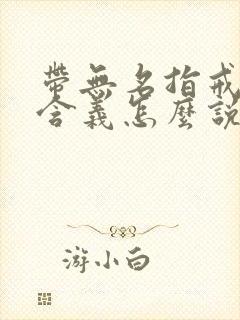 帶無名指戒
含義怎麼說
游小白